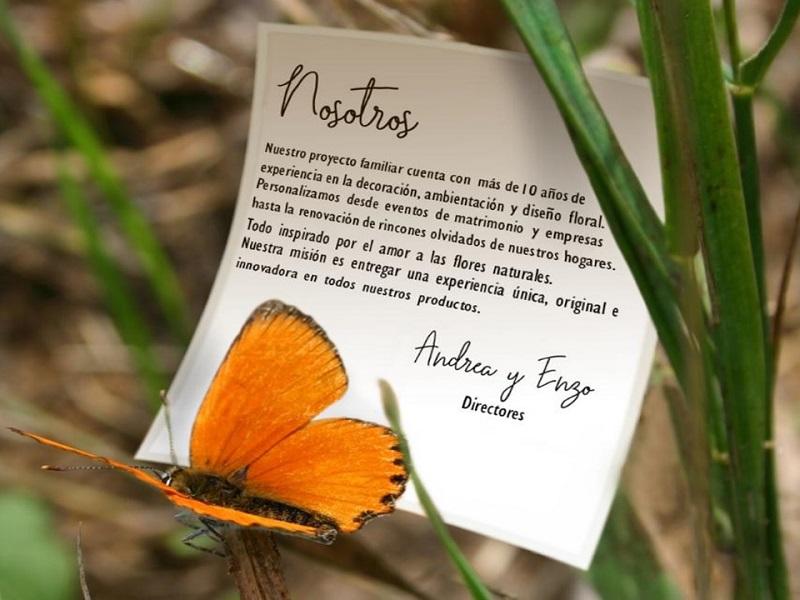 Nosotros
Nuestro proyecto familiar cuenta con más de10 años de
experiencia en la decoración, ambientación y diseño floral.
Personalizamos desde eventos de matrimonio y empresas
hasta la renovación de rincones olvidados de nuestros hogares.
Todo inspirado por el amor a las flores naturales.
Nuestra misión es entregar una experiencia única, original e
innovadora en todos nuestros productos.
Andrea y Enzo
Directores